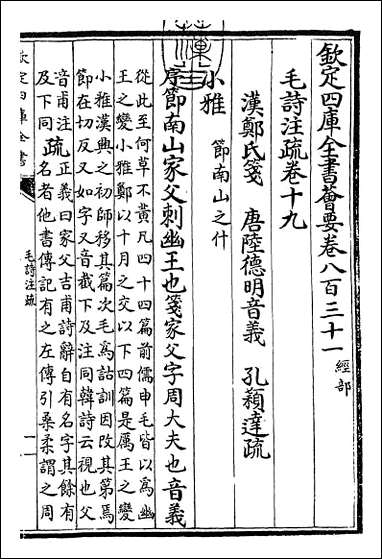 欽定四庫全書薈要卷八百三十一 經部
毛詩注疏卷十九
漢鄭氏箋 唐陸德明音義 孔穎達疏
小雅 節南山之什
序節南山家父刺幽王也箋家父字周大夫也音義
從此至何草不黃凡四十四篇前儒申毛皆以為幽
王之變小雅鄭以十月之交以下四篇是厲王之變
小雅漢興之初師移其篇次毛為詁訓因改其第焉
節在切反又如字又音截下及注同韓詩云視也父
音甫注疏正義曰家父吉甫詩辭自有名字其餘有
及下同名者他書傳記有之左傳引桑柔謂之周
欽定四庫全書
毛詩注疏
一